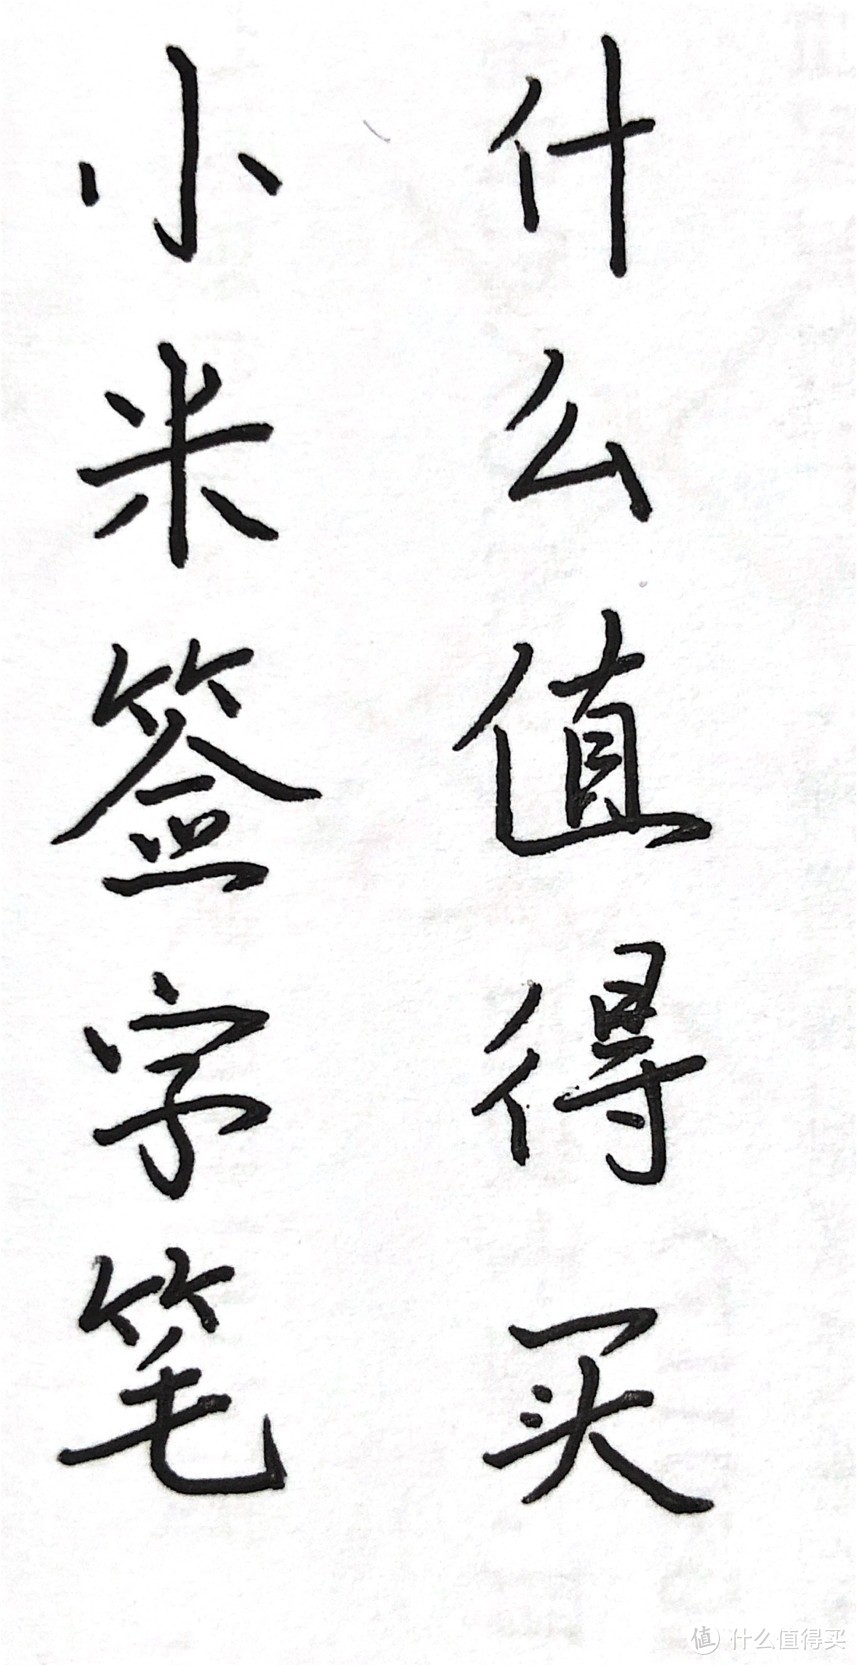 什么值得买
小米签字笔
值 什么值得买